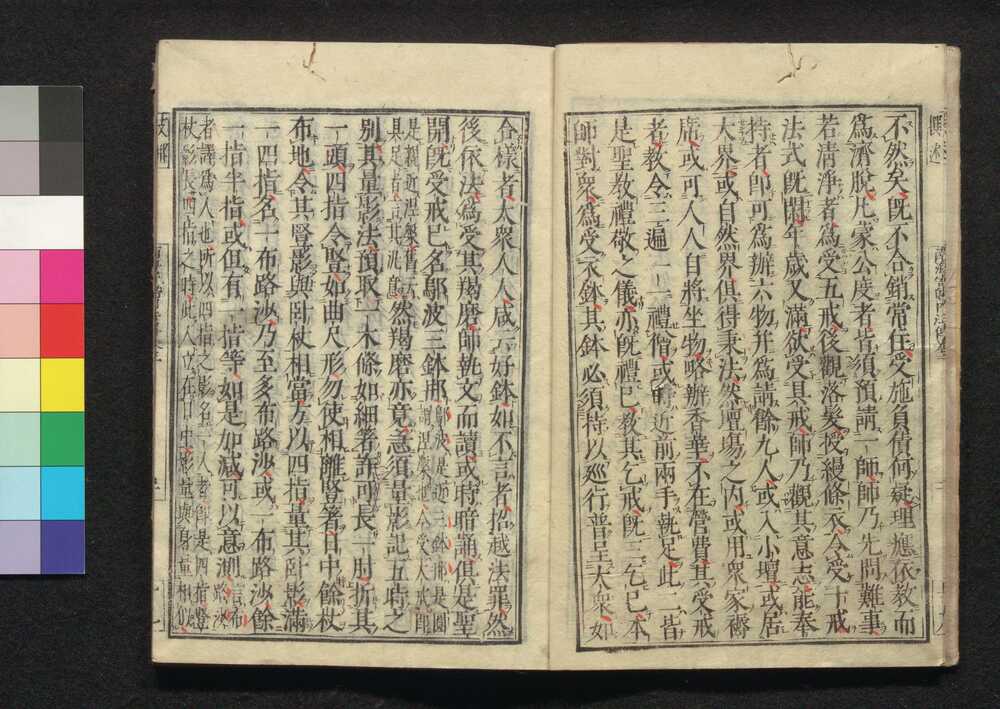 不然矣既不合銷常任受施負債何疑理應依教而
爲濟脱凡蒙公度者皆須預請一師師乃先問難事
若清淨者爲受五戒後觀落髮授縵條衣令受十戒
法式既閑年歲又滿欲受具戒師乃觀其意志能奉
持者卽可爲辦六物幷爲請餘九人或入小壇或居
大界或自然界俱得秉法然壇場之内或用衆家褥
席或可人人自將坐物略辦香華不在營費其受戒
者教令三遍一一禮僧或時近前兩手執足此二皆
是聖教禮敬之儀亦既禮已教其乞戒既三乞已本
師對衆爲受衣鉢其鉢必須持以巡行普呈大衆如
合樣者大衆人人咸云好鉢如不言者招越法罪然
後依法爲受其羯磨師執文而讀或時暗誦俱是聖
開既受戒已名鄔波三鉢那
鄔波是近三鉢那是圓
謂涅槃也今受大戒卽
是親近涅槃舊云
具足者言其汎意
然羯磨亦竟急須量影記五時之
別其量影法預取一木條如細箸許可長一肘折其
一頭四指令豎如曲尺形勿使相離豎著日中餘杖
布地令其豎影與臥杖相當方以四指量其臥影滿
一四指名一布路沙乃至多布路沙或一布路沙餘
一指半指或但有一指等如是加減可以意測
路沙
者譯爲人也所以四指之影名一人者卽是四指豎
杖影長四指之時此人立在日中影量與身量相似